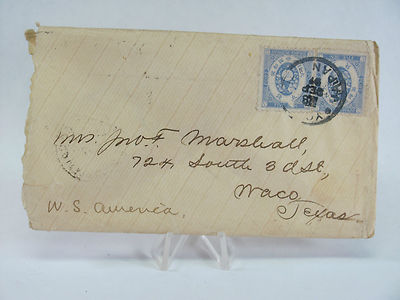 JAPAN
SEP
Mrs. Jno. F. Marshall,
724 South 3d St,
Waco,
Texas
U.S. America.